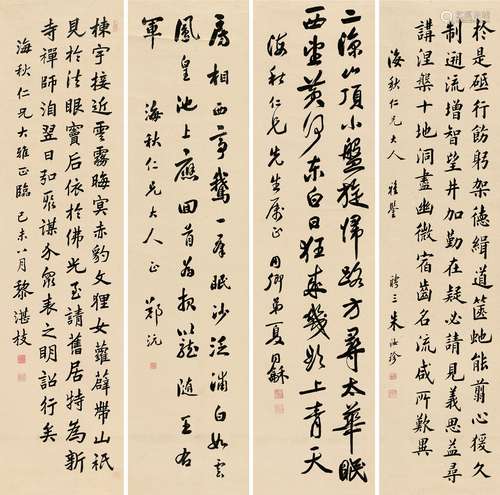 於是砥行飭躬架德緝道篋虵能剪心猨久
制遡流增智望井加勤在疑必請見義思益尋
講涅槃十地洞盡幽微宿齒名流咸所歎異
海秋仁兄大人 雅鑒
聘三朱汝珍
二涼山頂小盤旋歸路方尋太華眠
西望黃河東白日狂來幾欲上青天
海秋仁兄先生屬正 同龢
房相西亭鵝一羣眠沙泛浦白如雲
鳳皇池上應回首為報籠隨王右
軍
海秋仁兄大人正
鄭沅
棟宇接近雲霧晦冥赤豹文狸女蘿薜帶山祇
見於法眼竇后依於佛光至請舊居特為新
寺禪師洎翌日弘聚謀介眾表之明詔行矣
海秋仁兄大雅正臨 己未八月黎湛枝